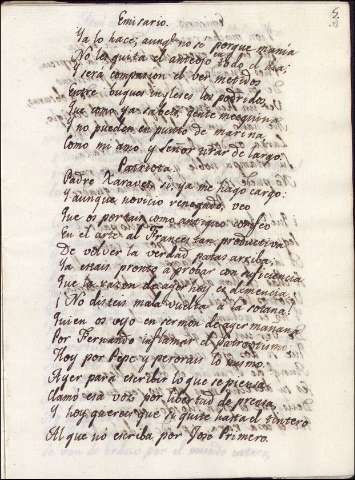 5
Emisario.
Ya lo hace; aunq.e no sé porque mania
No les quita el anteojo en todo el dia;
Y será compasion el ver metidos
Entre buques ingleses los podridos,
Que como ya sabeis, gente mezquina
Y no pueden en punto de marina
Como mi amo y Señor tirar de largo.
Patriota
Padre Xaraves, si, ya me hago cargo:
Y aunque novicio renegado, veo
Que os portais como antiguo corifeo
En el arte al Frances tan productiva
De volver la verdad patas arriba:
Ya estais pronto à probar con eficiencia
Que la razon de ayer hoy es demencia.
¡No disteis mala vuelta à la sotana!
Quien os vijo en sermon de ayer mañana
Por Fernando inflamar el patriotismo
Hoy por Pepe y perorais lo mismo.
Ayer para escribir lo que se piensa
Clamò esa voz por libertad de prensa,
Y hoy quereis que se quite hasta el tintero
Al que no escriba por José Primero.